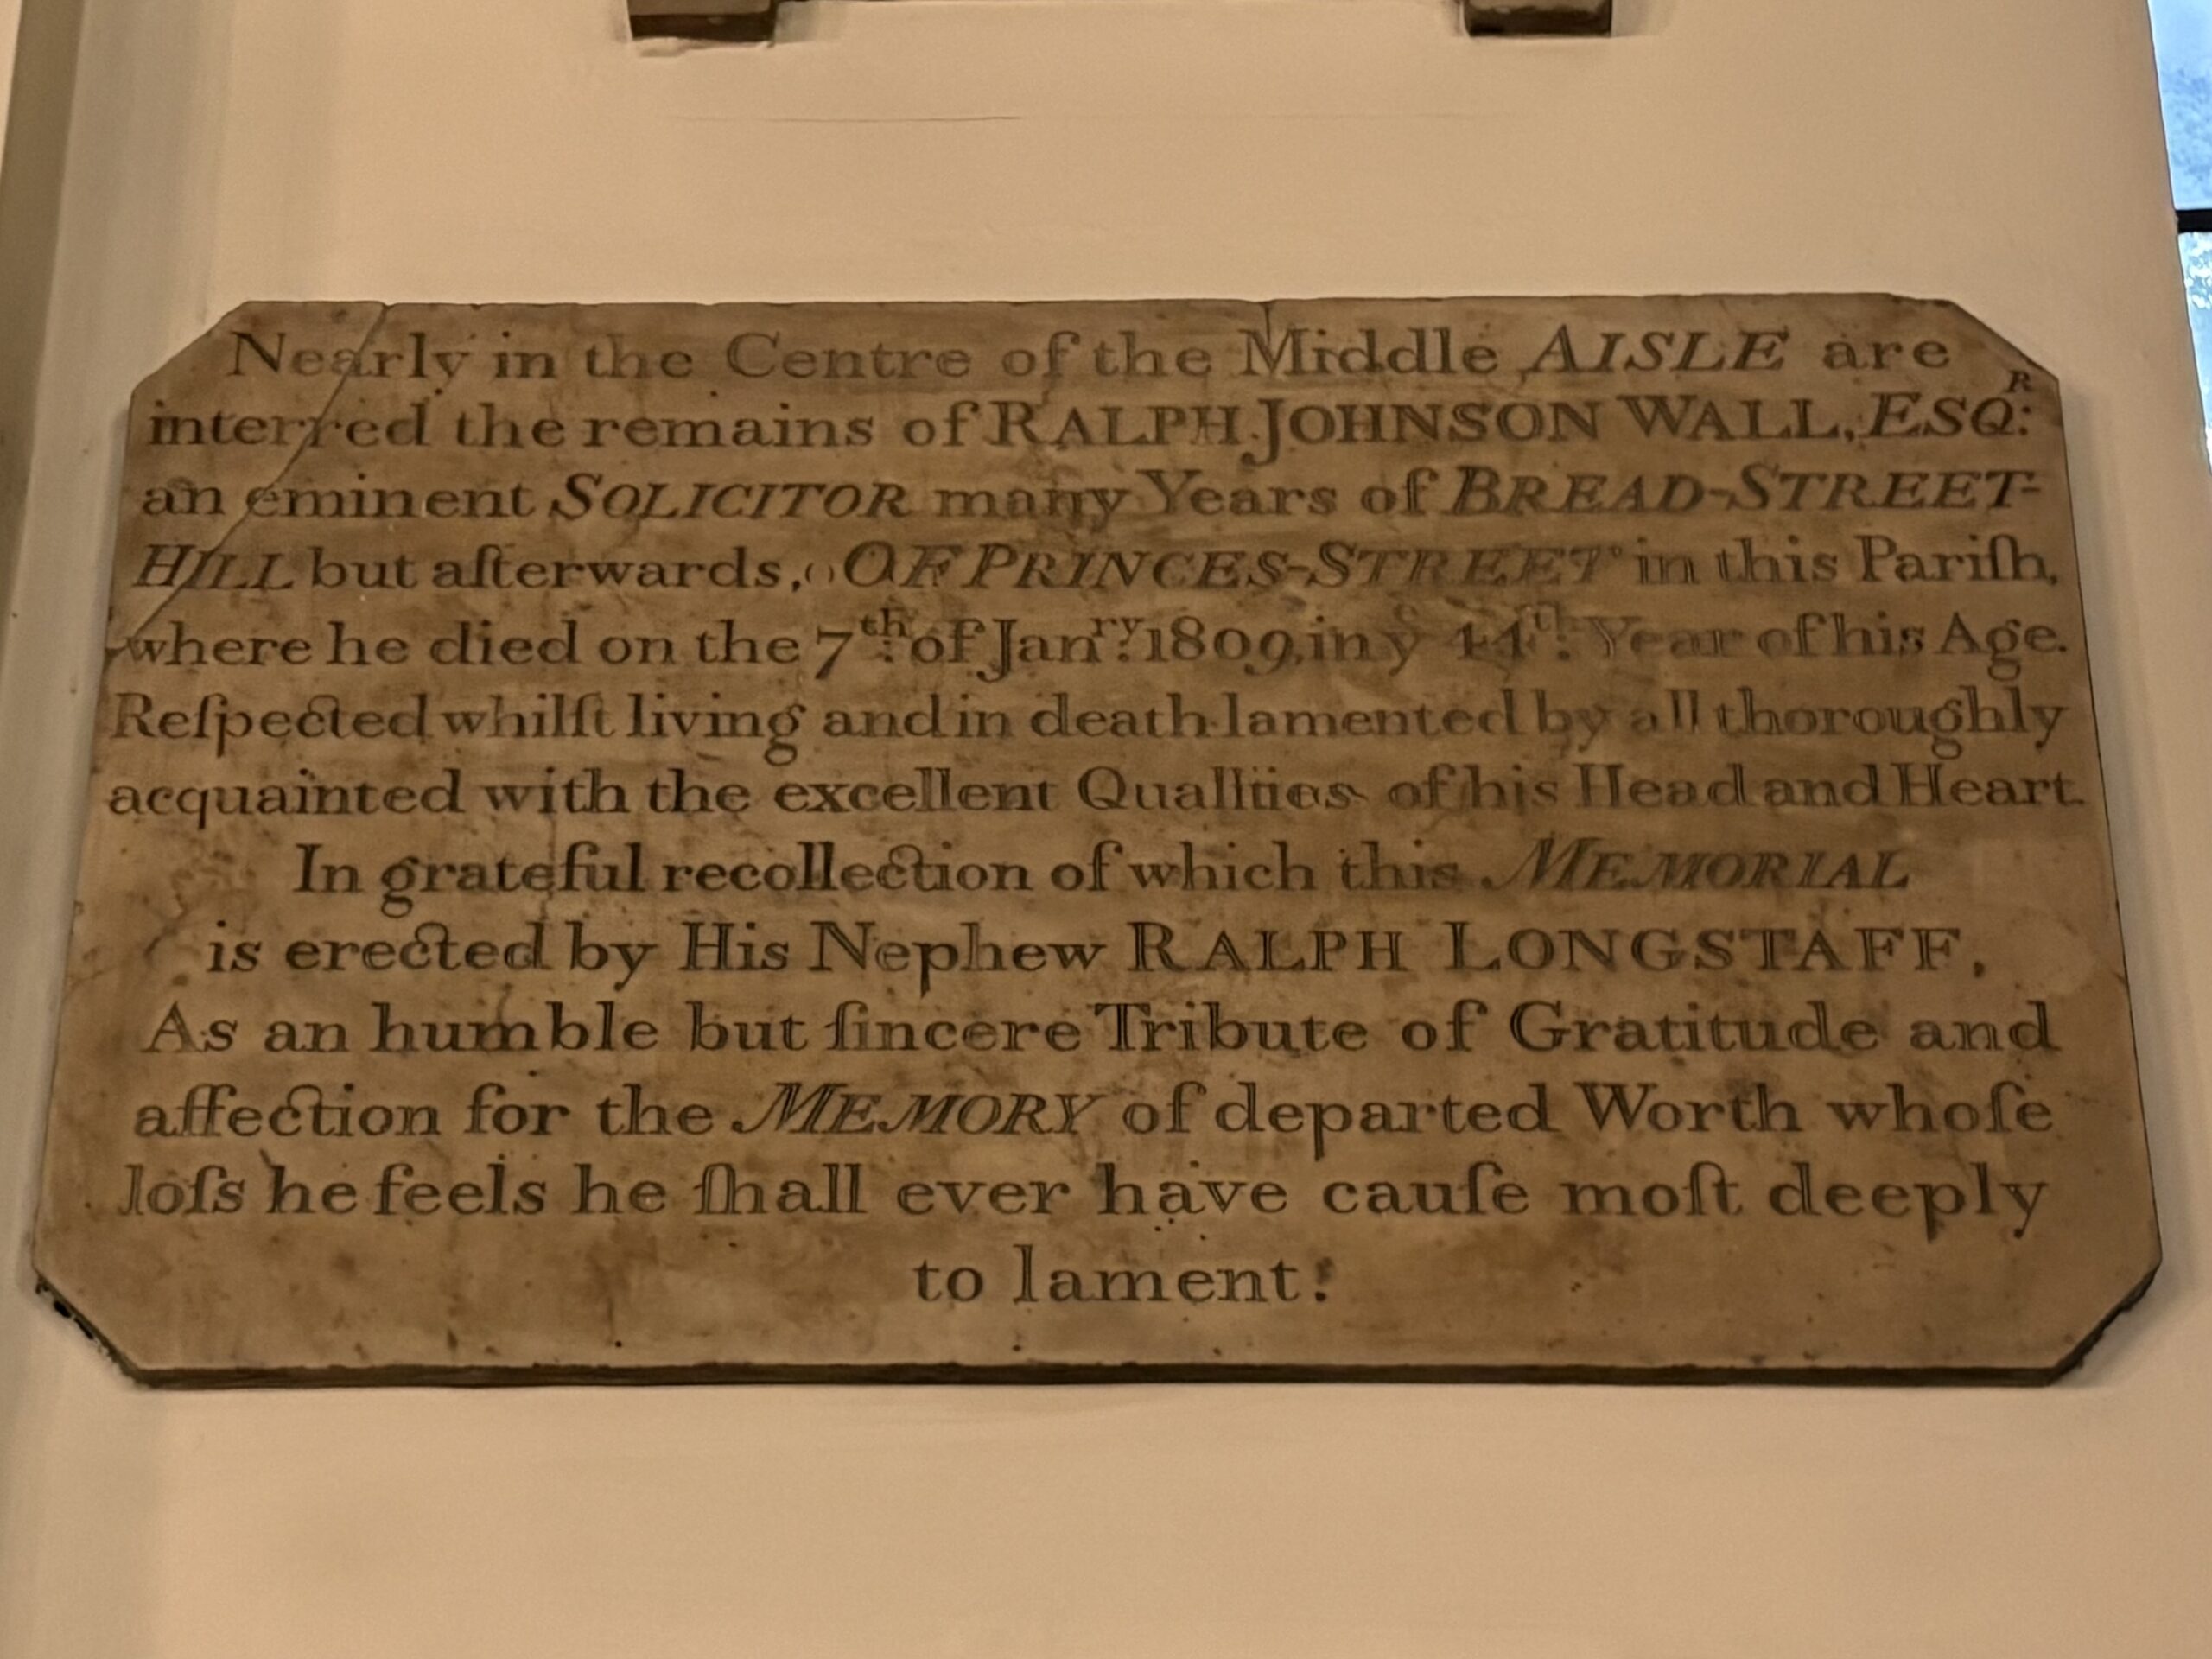 Nearly in the Centre of the Middle AISLE are
interred the remains of RALPH JOHNSON WALL, ESQ.R
an eminent SOLICITOR many Years of BREAD-STREET-
HILL but afterwards, OF PRINCES-STREET in this Pariſh,
where he died on the 7th of Janry 1809, in ye 44th Year of his Age.
Reſpected whilſt living and in death lamented by all thoroughly
acquainted with the excellent Qualities of his Head and Heart.
In grateful recollection of which this MEMORIAL
is erected by His Nephew RALPH LONGSTAFF,
As an humble but ſincere Tribute of Gratitude and
affection for the MEMORY of departed Worth whoſe
loſs he feels he ſhall ever have cauſe moſt deeply
to lament.